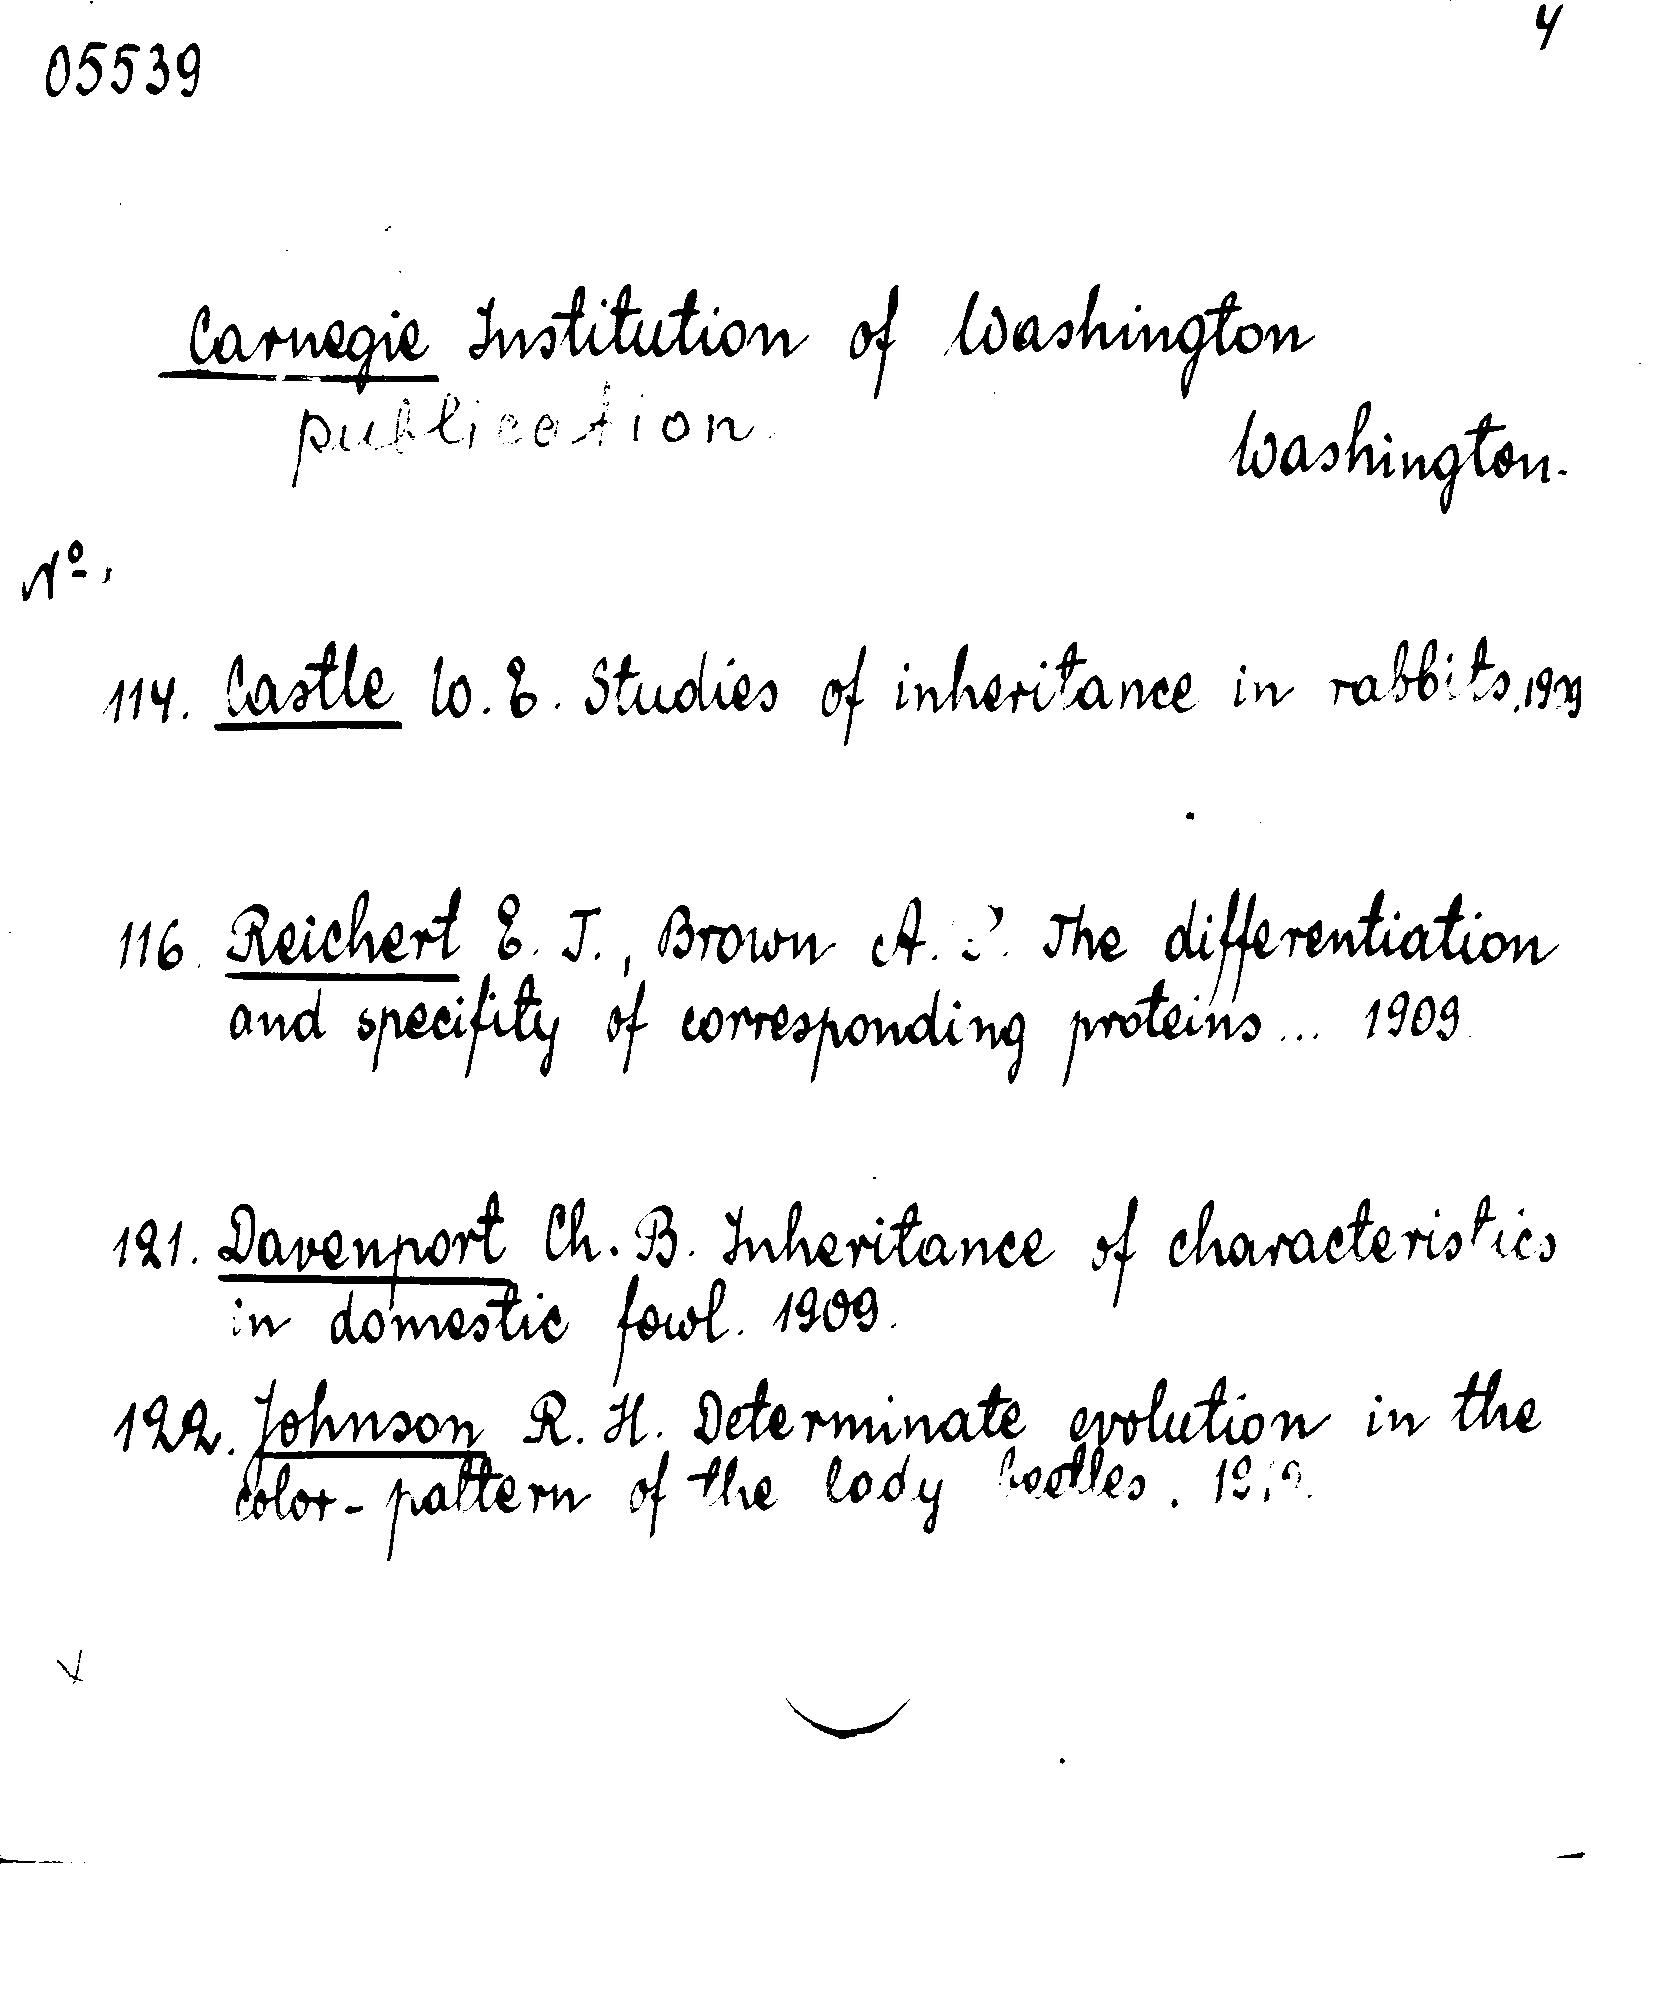 4
05539
Carnegie Institution of Washington
publication.
Washington.
№.
114. Castle W. E. Studies of inheritance in rabbits, 1909
116. Reichert E. T., Brown A. The differentiation
and specifity of corresponding proteins... 1909.
121. Davenport Ch. B. Inheritance of characteristics
in domestic fowl. 1909.
122. Johnson R. H. Determinate evolution in the
color-pattern of the lady beetles.